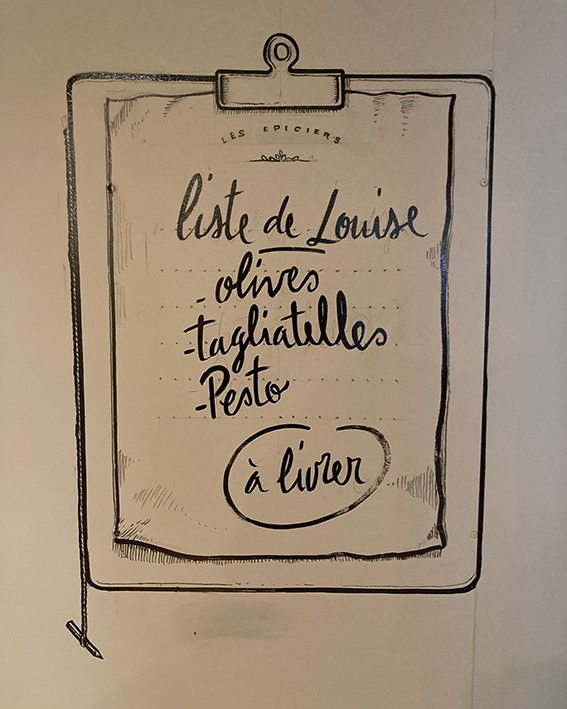 LES EPICIERS
liste de Louise
- olives
- tagliatelles
- Pesto
à livrer